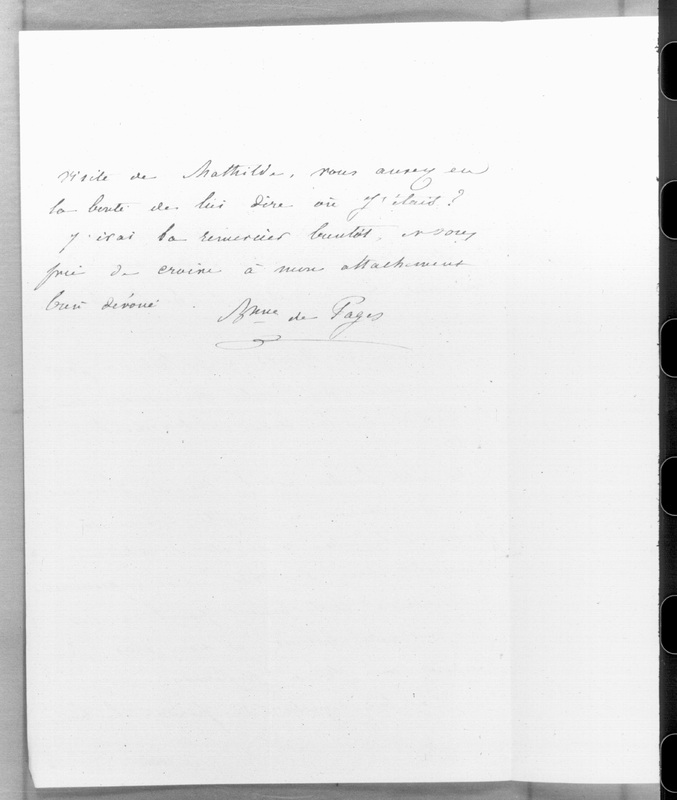 visite de Mathilde, vous aurez eu
la bonté de lui dire où j'étais?
J'irai la remercier bientôt, & vous
prie de croire à mon attachement
bien dévoué
Anne de Pages